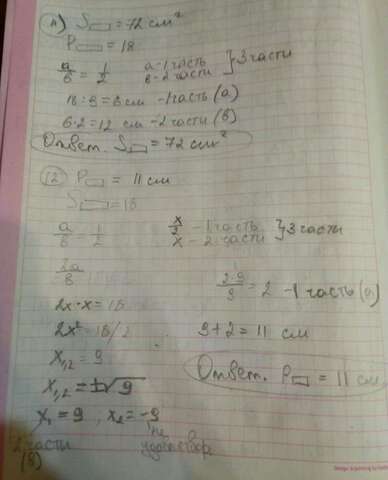 А) S▭ = 72 см²
P▭ = 18
a/в = 1/2 a - 1 часть в - 2 части } 3 части
18 : 3 = 6 см - 1 часть (а)
6·2 = 12 см - 2 части (в)
Ответ. S▭ = 72 см²
(2) P▭ = 11 см
S▭ = 18
a/в = 1/2 x/2 - 1 часть x - 2 части } 3 части
2a/в
2·9/9 = 2 - 1 часть (а)
2x·x = 18
2x² = 18 / 2 9 + 2 = 11 см
x₁,₂ = 9
x₁,₂ = ±√9 Ответ. P▭ = 11 см
x₁ = 9, x₂ = -9
2 части не
(в)